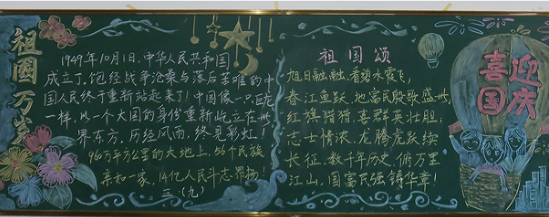 祖国万岁
1949年10月1日,中华人民共和国
成立了,饱经战争沧桑与落后苦难的中
国人民终于重新站起来了!中国像一只巨龙
一样,以一个大国的身份重新屹立在世
界东方,历经风雨,终见彩虹!
960万平方公里的大地上,56个民族
亲和一家,14亿人民斗志昂扬
三(九)
祖国颂
旭日融融,看碧水霞飞,
春江鱼跃,地富民殷歌盛世,
红旗猎猎,喜群英壮胆,
志士情浓,龙腾虎跃续
长征,数千年历史,俩万里
江山,国富民强铸华章!
喜迎
国庆